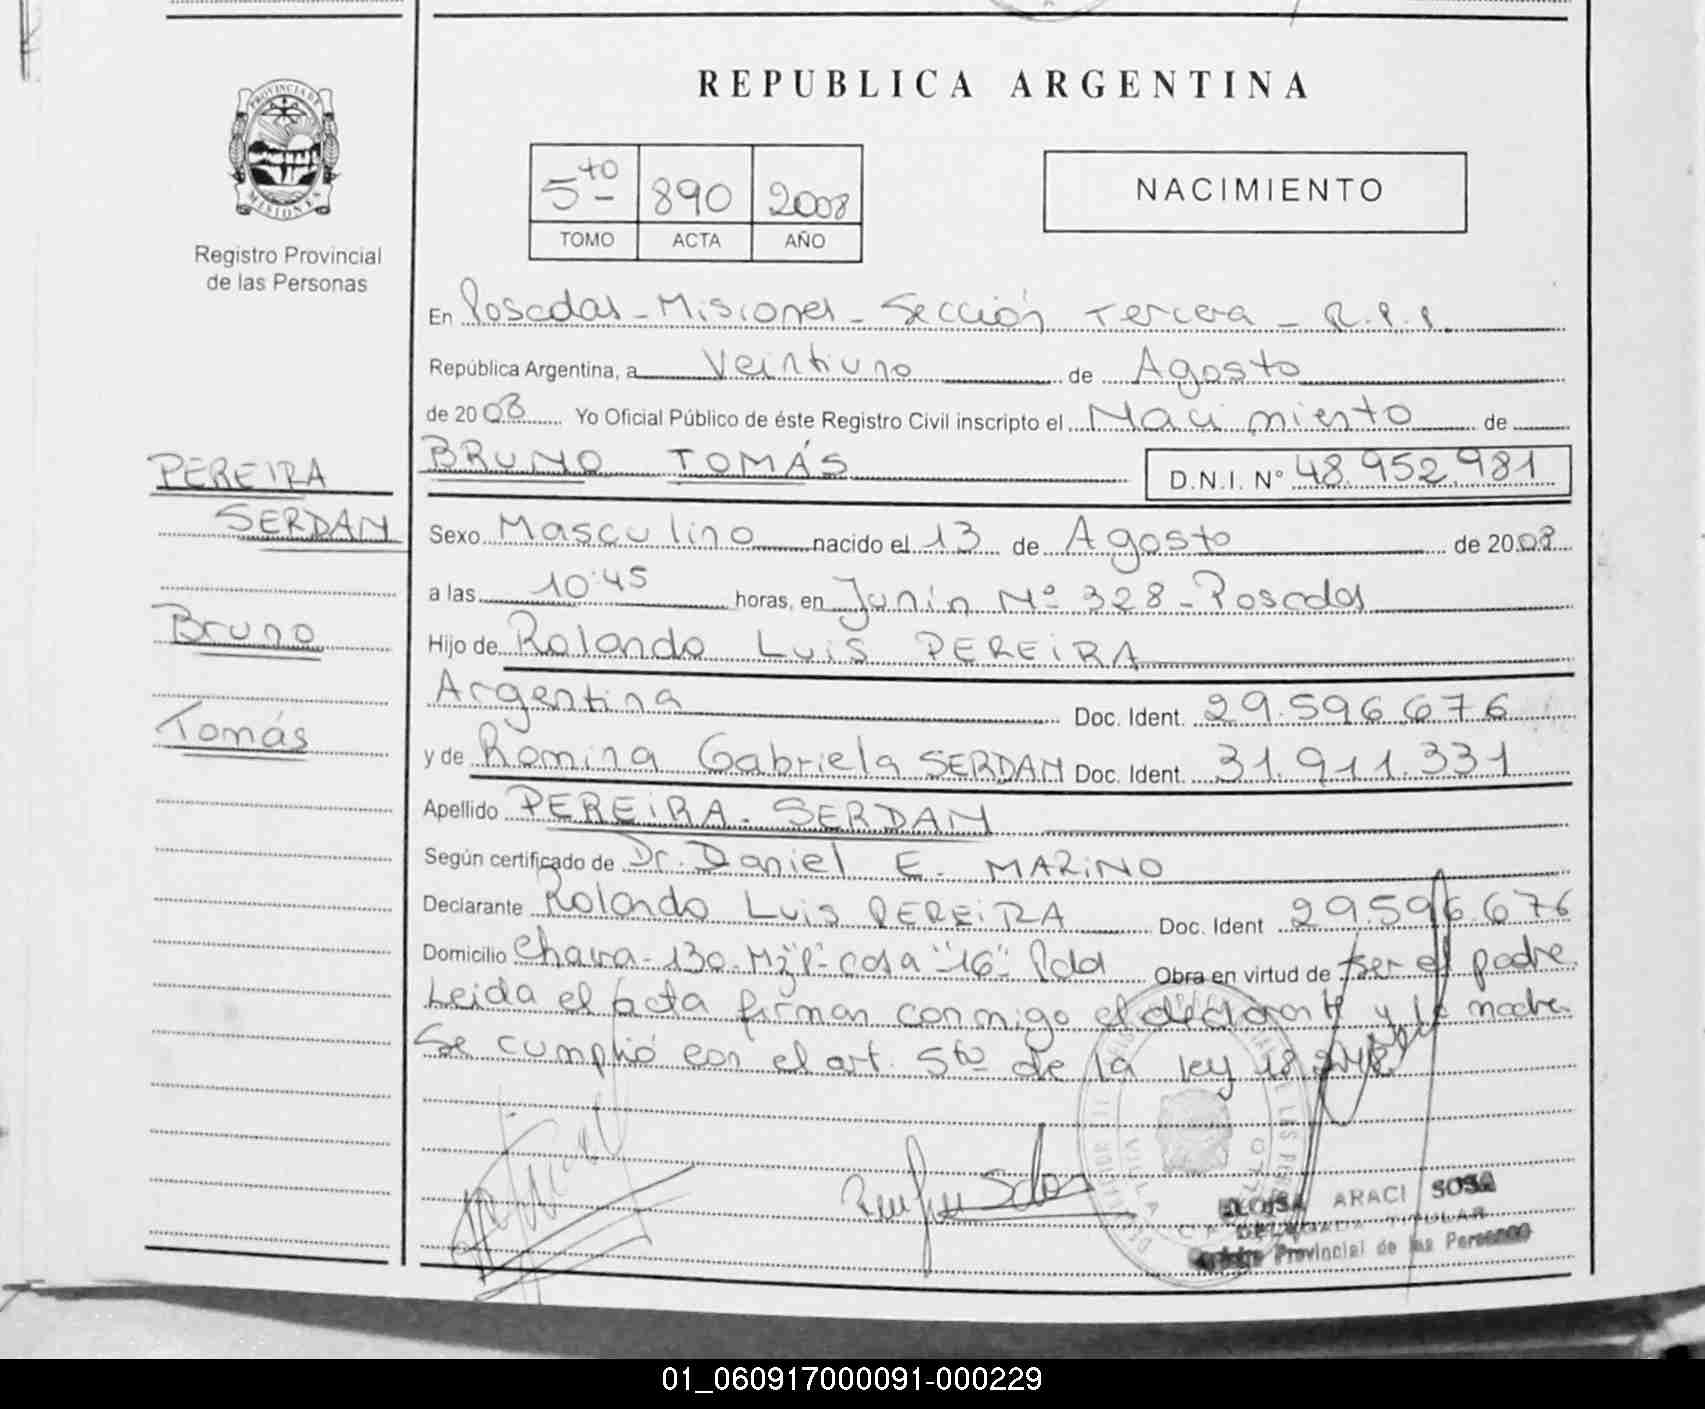 REPUBLICA ARGENTINA
PROVINCIA DE
MISIONES
Registro Provincial
de las Personas
5to 890 2008
TOMO ACTA AÑO
NACIMIENTO
En Posadas - Misiones - Sección Tercera - R.P.P.
República Argentina, a Veintiuno de Agosto
de 2008 Yo Oficial Público de éste Registro Civil inscripto el Nacimiento de
BRUNO TOMÁS D.N.I. Nº 48.952.981
PEREIRA
SERDAN
Bruno
Tomás
Sexo Masculino nacido el 13 de Agosto de 2008
a las 10:45 horas, en Junín Nº 328 - Posadas
Hijo de Rolando Luis PEREIRA
Argentina Doc. Ident. 29.596.676
y de Romina Gabriela SERDAN Doc. Ident. 31.911.331
Apellido PEREIRA - SERDAN
Según certificado de Dr. Daniel E. MARINO
Declarante Rolando Luis PEREIRA Doc. Ident 29.596.676
Domicilio Chacra - 130 - Mz "P" casa "16" Pdas Obra en virtud de ser el padre.
Leida el acta firman conmigo el declarante y la madre.
Se cumplió con el art. 5to de la ley 18.248
ELOISA ARACI SOSA
DELEGADA TITULAR
Registro Provincial de las Personas
01_060917000091-000229